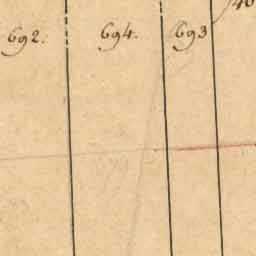 692. 694. 693